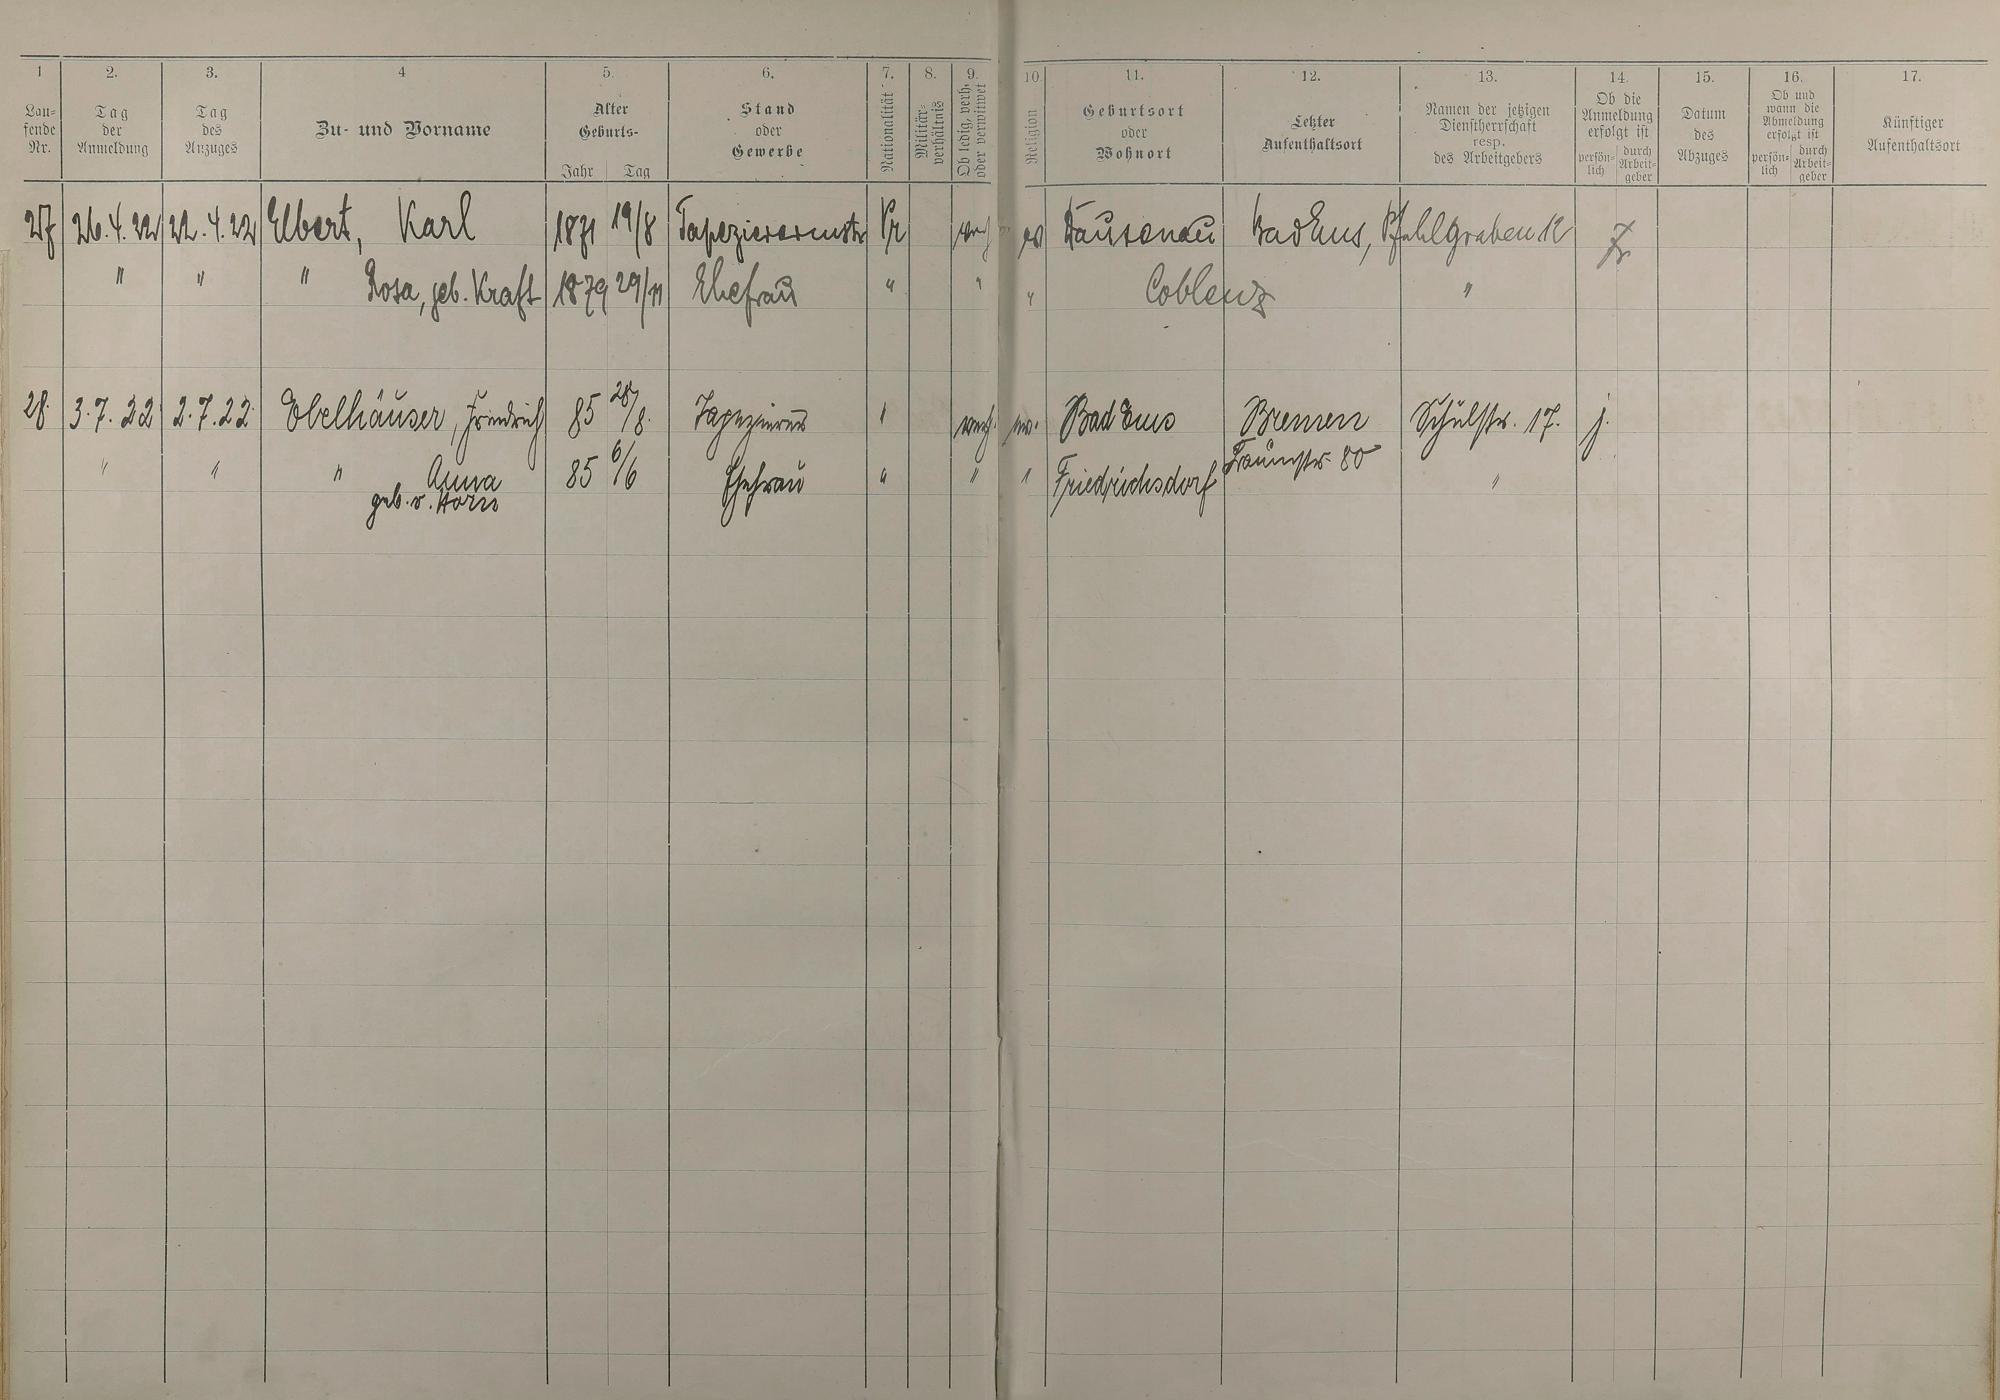 1 2. 3. 4 5. 6. 7. 8. 9. 10. 11. 12. 13. 14. 15. 16. 17.
Lau-
fende
Nr.
Tag
der
Anmeldung
Tag
des
Anzuges
Zu- und Vorname
Alter
Geburts-
Jahr Tag
Stand
oder
Gewerbe
Nationalität
Militär-
verhältnis
Ob ledig, verh.
oder verwitwet
Religion
Geburtsort
oder
Wohnort
Letzter
Aufenthaltsort
Namen der jetzigen
Dienstherrschaft
resp.
des Arbeitgebers
Ob die
Anmeldung
erfolgt ist
persön-
lich
durch
Arbeit-
geber
Datum
des
Abzuges
Ob und
wann die
Abmeldung
erfolgt ist
persön-
lich
durch
Arbeit-
geber
Künftiger
Aufenthaltsort
27 26.4.22 22.4.22 Elbert, Karl 1871 19/8 Tapezierermstr Pr verh ev Dausenau Bad Ems, Pfahlgraben
" " " Rosa, geb. Kraft 1879 29/11 Ehefrau " " " Coblenz "
28. 3.7.22 2.7.22. Ebelhäuser, Friedrich 85 28/8. Tapezierer " verh. ev. Bad Ems Bremen Schulstr. 17. j.
" " " Anna 85 6/6 Ehefrau " " " Friedrichsdorf 80 "
geb. v. Horn